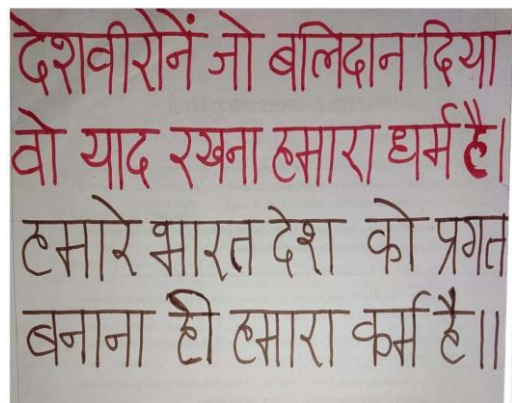 देशवीरोनें जो बलिदान दिया
वो याद रखना हमारा धर्म है।
हमारे भारत देश को प्रगत
बनाना ही हमारा कर्म है।।